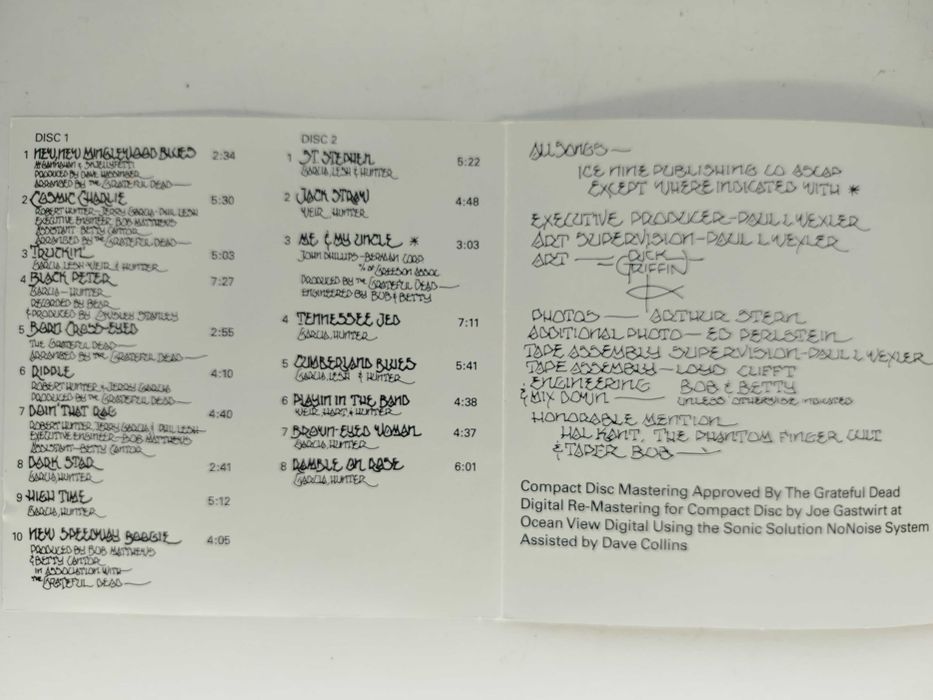 DISC 1
1 NEW, NEW MINGLEWOOD BLUES 2:34
McGANNAHAN & SKJELLYFETTI
PRODUCED BY DAVE HASSINGER
ARRANGED BY THE GRATEFUL DEAD
2 COSMIC CHARLIE 5:30
ROBERT HUNTER-JERRY GARCIA-PHIL LESH
EXECUTIVE ENGINEER BOB MATTHEWS
ASSISTANT BETTY CANTOR
ARRANGED BY THE GRATEFUL DEAD
3 TRUCKIN' 5:03
GARCIA, LESH WEIR & HUNTER
4 BLACK PETER 7:27
GARCIA-HUNTER
RECORDED BY BEAR
& PRODUCED BY OWSLEY STANLEY
5 BORN CROSS-EYED 2:55
THE GRATEFUL DEAD
ARRANGED BY THE GRATEFUL DEAD
6 RIPPLE 4:10
ROBERT HUNTER & JERRY GARCIA
PRODUCED BY THE GRATEFUL DEAD
7 DOIN' THAT RAG 4:40
ROBERT HUNTER, JERRY GARCIA & PHIL LESH
EXECUTIVE ENGINEER-BOB MATTHEWS
ASSISTANT-BETTY CANTOR
8 DARK STAR 2:41
GARCIA, HUNTER
9 HIGH TIME 5:12
GARCIA, HUNTER
10 NEW SPEEDWAY BOOGIE 4:05
PRODUCED BY BOB MATTHEWS
& BETTY CANTOR
IN ASSOCIATION WITH
THE GRATEFUL DEAD
DISC 2
1 ST. STEPHEN 5:22
GARCIA, LESH & HUNTER
2 JACK STRAW 4:48
WEIR, HUNTER
3 ME & MY UNCLE * 3:03
JOHN PHILLIPS-BERMAN CORP
% OF GREESON ASSOC
PRODUCED BY THE GRATEFUL DEAD
ENGINEERED BY BOB & BETTY
4 TENNESSEE JED 7:11
GARCIA, HUNTER
5 CUMBERLAND BLUES 5:41
GARCIA, LESH & HUNTER
6 PLAYIN IN THE BAND 4:38
WEIR, HART & HUNTER
7 BROWN-EYED WOMAN 4:37
GARCIA, HUNTER
8 RAMBLE ON ROSE 6:01
GARCIA, HUNTER
ALL SONGS —
ICE NINE PUBLISHING CO ASCAP
EXCEPT WHERE INDICATED WITH *
EXECUTIVE PRODUCER-PAUL L WEXLER
ART SUPERVISION-PAUL L WEXLER
ART — RICK GRIFFIN
PHOTOS — ARTHUR STERN
ADDITIONAL PHOTO — ED PERLSTEIN
TAPE ASSEMBLY SUPERVISION-PAUL L WEXLER
TAPE ASSEMBLY — LOYD CLIFFT
ENGINEERING BOB & BETTY
& MIX DOWN — UNLESS OTHERWISE INDICATED
HONORABLE MENTION
HAL KANT, THE PHANTOM FINGER CULT
& TAPER BOB —
Compact Disc Mastering Approved By The Grateful Dead
Digital Re-Mastering for Compact Disc by Joe Gastwirt at
Ocean View Digital Using the Sonic Solution NoNoise System
Assisted by Dave Collins